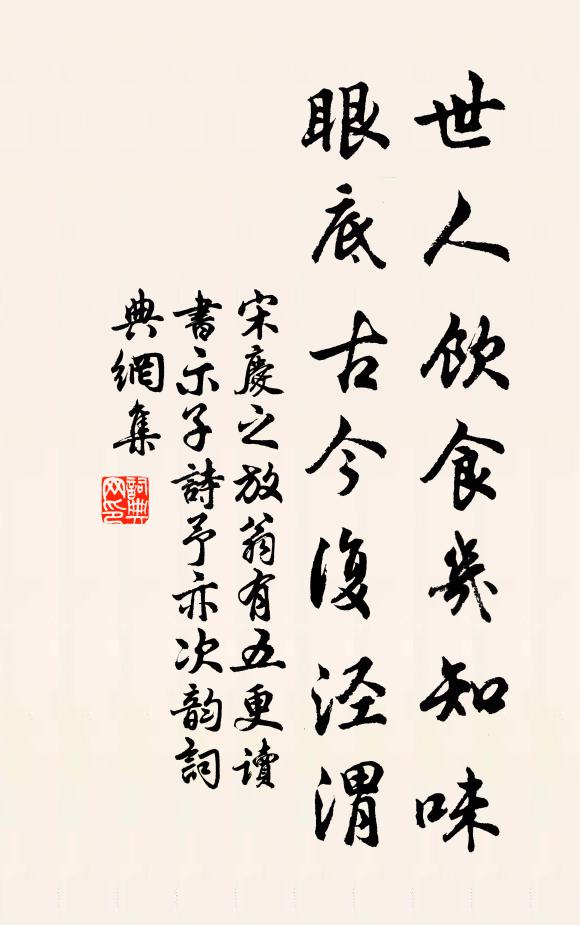 世人飲食幾知味
眼底古今復涇渭
宋慶之放翁有五更讀
書示子詩予亦次韵詞
典網集
詞典
网印